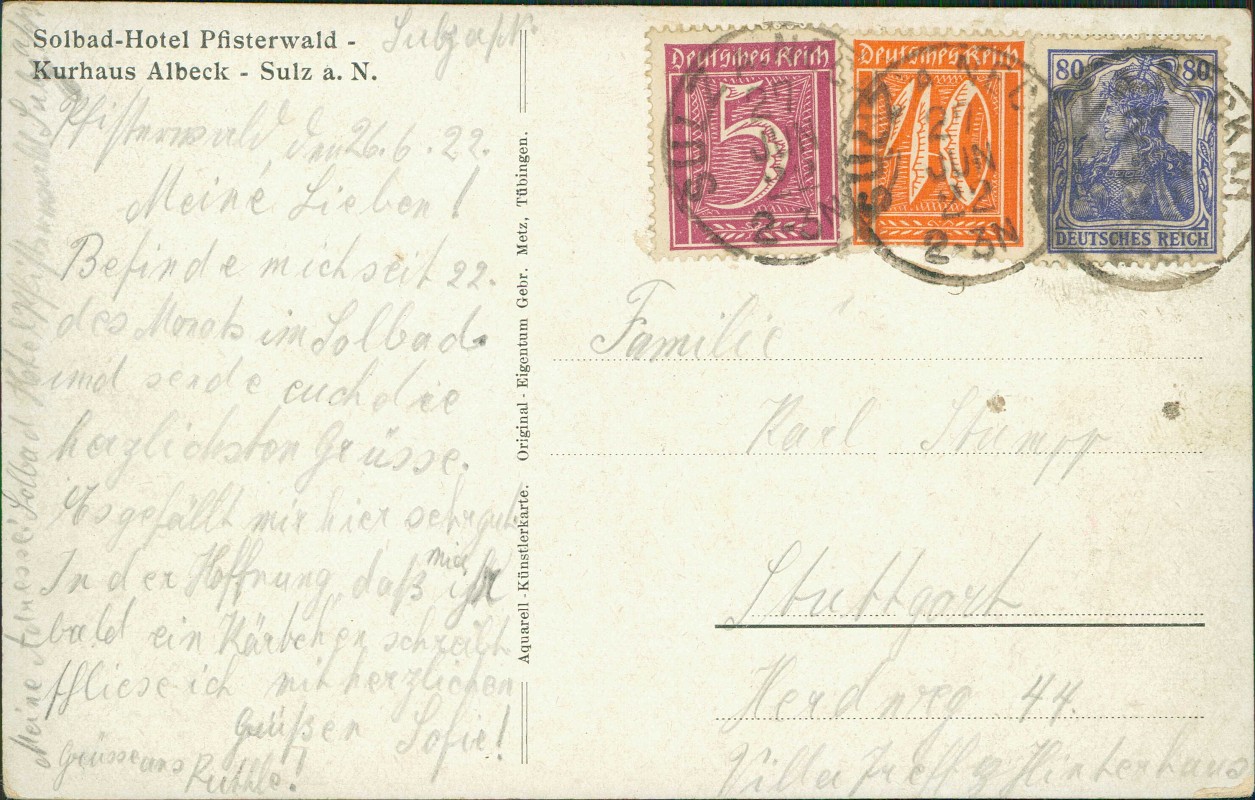 Solbad-Hotel Pfisterwald -
Kurhaus Albeck - Sulz a. N.
Sulz a/N.
Pfisterwald den 26.6.22.
Meine Lieben!
Befinde mich seit 22.
des Monats im Solbad
und sende euch die
herzlichsten Grüsse.
Es gefällt mir hier sehr gut
In der Hoffnung daß mir ihr
bald ein Kärtchen schreibt
schliese ich mit herzlichen
Grüßen Sofie!
Grüsse ans
Meine Adresse: Solbad Hotel Pfisterwald Sulz a/N
Aquarell-Künstlerkarte. Original-Eigentum Gebr. Metz, Tübingen.
Deutsches Reich
5
Deutsches Reich
10
80 80
DEUTSCHES REICH
SULZ
27
JUN
22
2-3N
SULZ
27
JUN
22
2-3N
CKAR
Familie
Karl Stumpp
Stuttgart
Herdweg 44.
Villa Hinterhaus